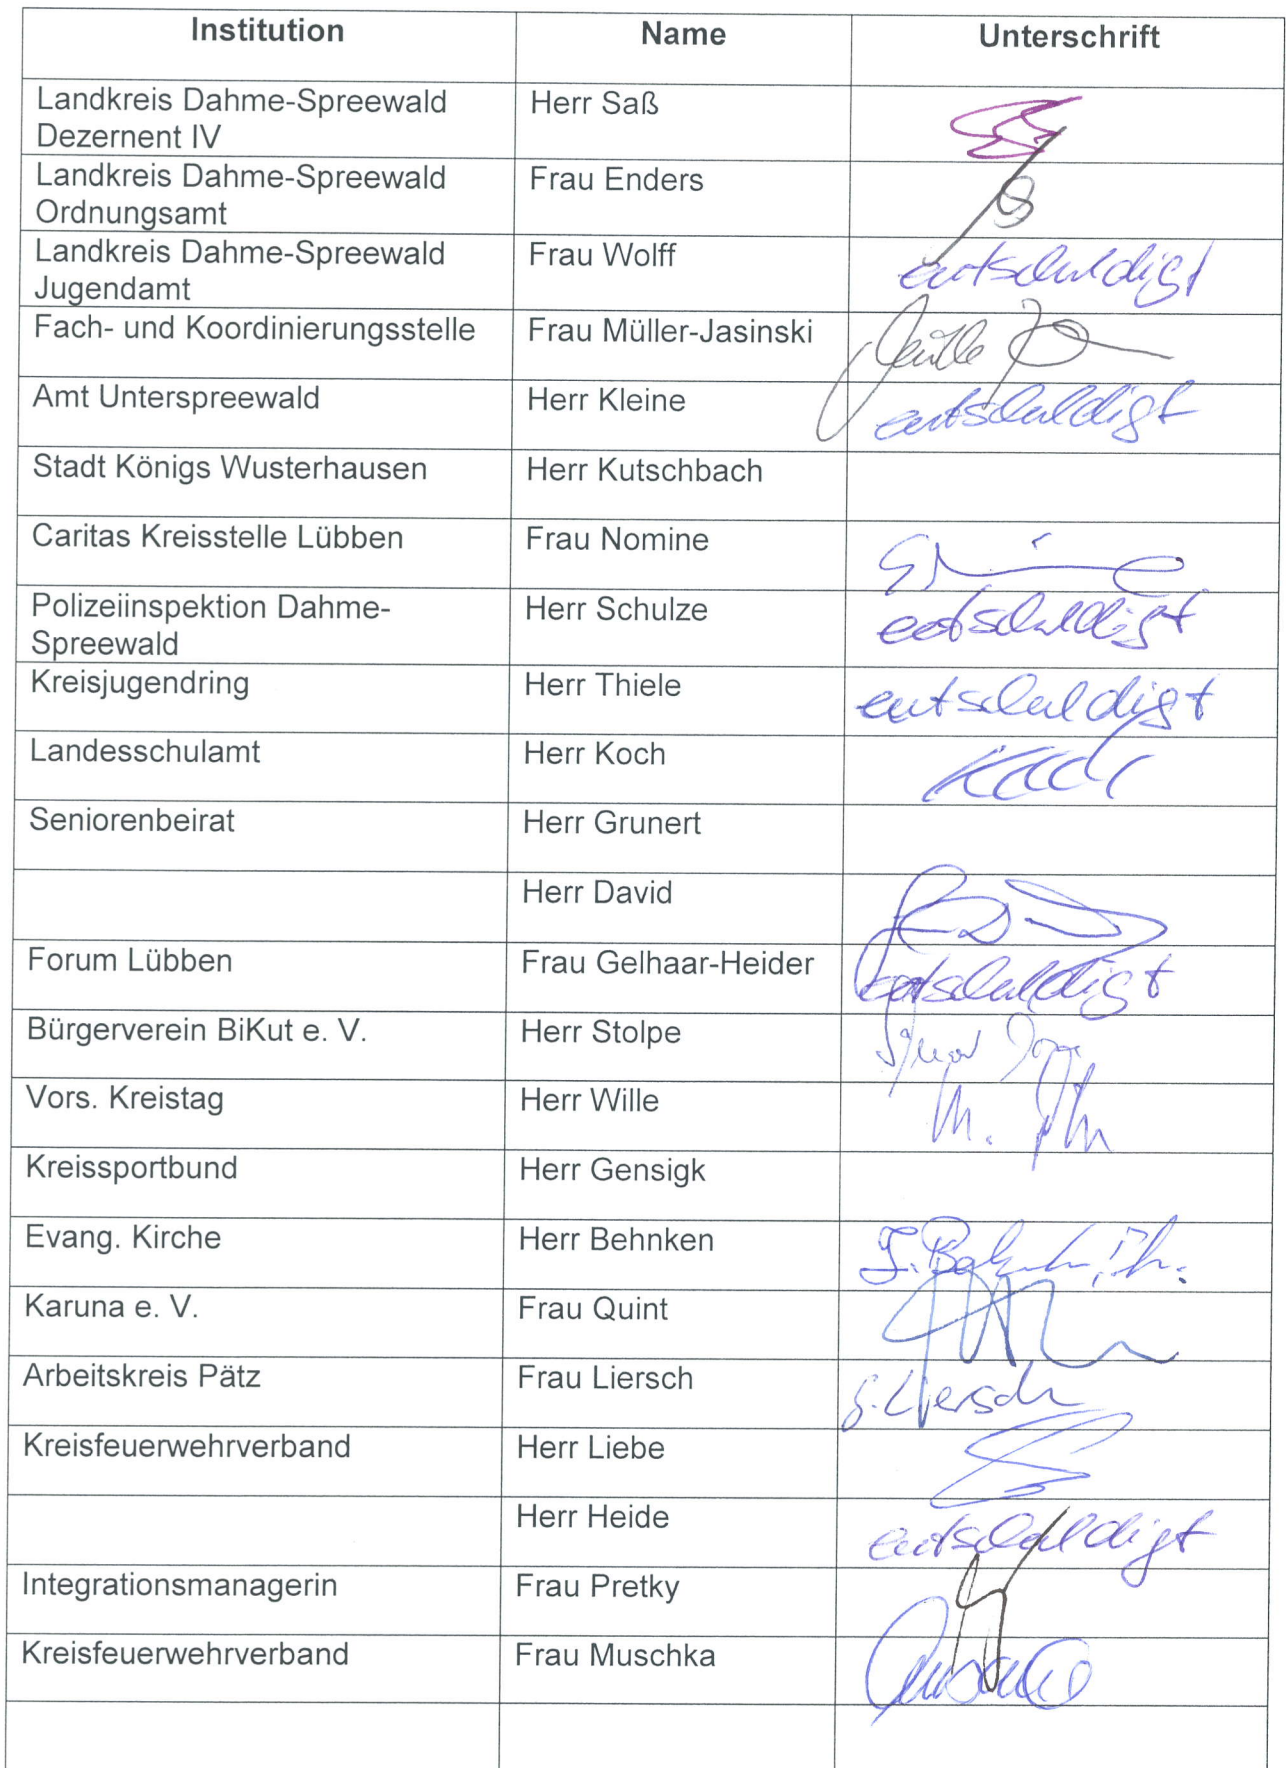 Institution Name Unterschrift
Landkreis Dahme-Spreewald Herr Saß
Dezernent IV
Landkreis Dahme-Spreewald Frau Enders
Ordnungsamt
Landkreis Dahme-Spreewald Frau Wolff entschuldigt
Jugendamt
Fach- und Koordinierungsstelle Frau Müller-Jasinski
Amt Unterspreewald Herr Kleine entschuldigt
Stadt Königs Wusterhausen Herr Kutschbach
Caritas Kreisstelle Lübben Frau Nomine
Polizeiinspektion Dahme- Herr Schulze entschuldigt
Spreewald
Kreisjugendring Herr Thiele entschuldigt
Landesschulamt Herr Koch Koch
Seniorenbeirat Herr Grunert
Herr David
Forum Lübben Frau Gelhaar-Heider entschuldigt
Bürgerverein BiKut e. V. Herr Stolpe
Vors. Kreistag Herr Wille
Kreissportbund Herr Gensigk
Evang. Kirche Herr Behnken
Karuna e. V. Frau Quint
Arbeitskreis Pätz Frau Liersch Liersch
Kreisfeuerwehrverband Herr Liebe
Herr Heide entschuldigt
Integrationsmanagerin Frau Pretky
Kreisfeuerwehrverband Frau Muschka